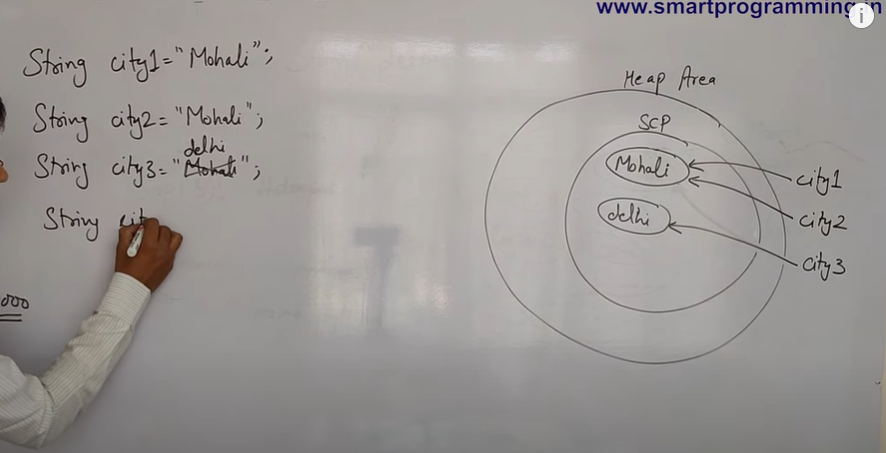 www.smartprogramming.in
String city1="Mohali";
String city2="Mohali";
delhi
String city3="Mohali";
String cit
000
Heap Area
SCP
Mohali
delhi
city1
city2
city3
i